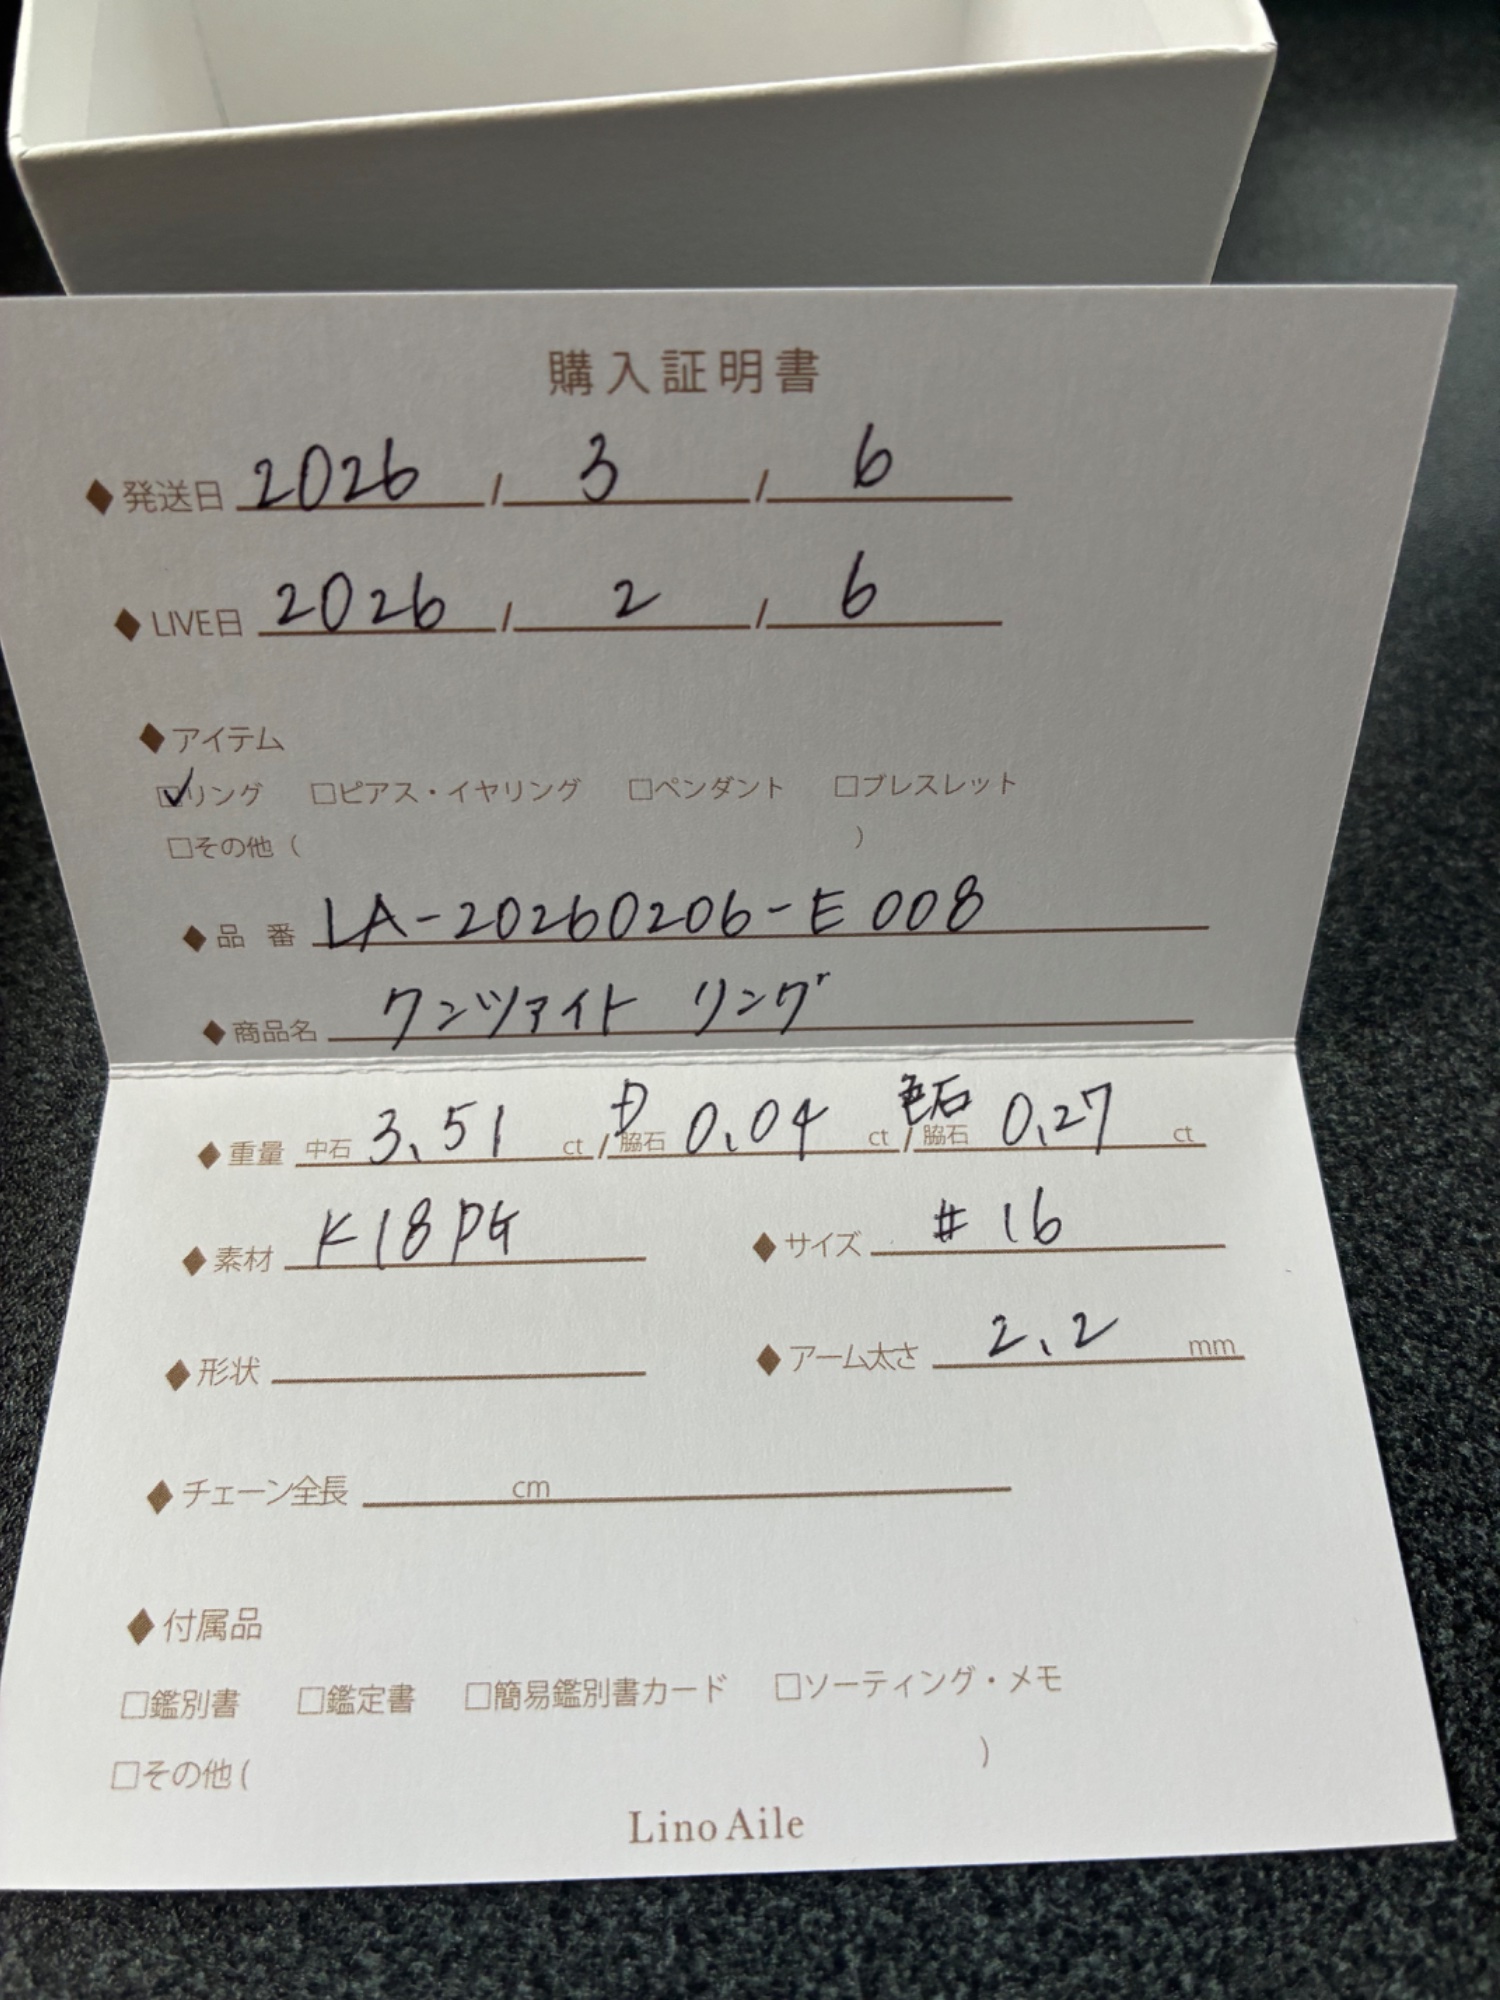 購入証明書
◆発送日 2026 / 3 / 6
◆LIVE日 2026 / 2 / 6
◆アイテム
☑リング □ピアス・イヤリング □ペンダント □ブレスレット
□その他 ( )
◆品番 LA-20260206-E008
◆商品名 クンツァイト リング
◆重量 中石 3.51 ct / D 脇石 0.04 ct / 色石 脇石 0.27 ct
◆素材 K18PG ◆サイズ #16
◆形状 ◆アーム太さ 2.2 mm
◆チェーン全長 cm
◆付属品
□鑑別書 □鑑定書 □簡易鑑別書カード □ソーティング・メモ
□その他 ( )
Lino Aile